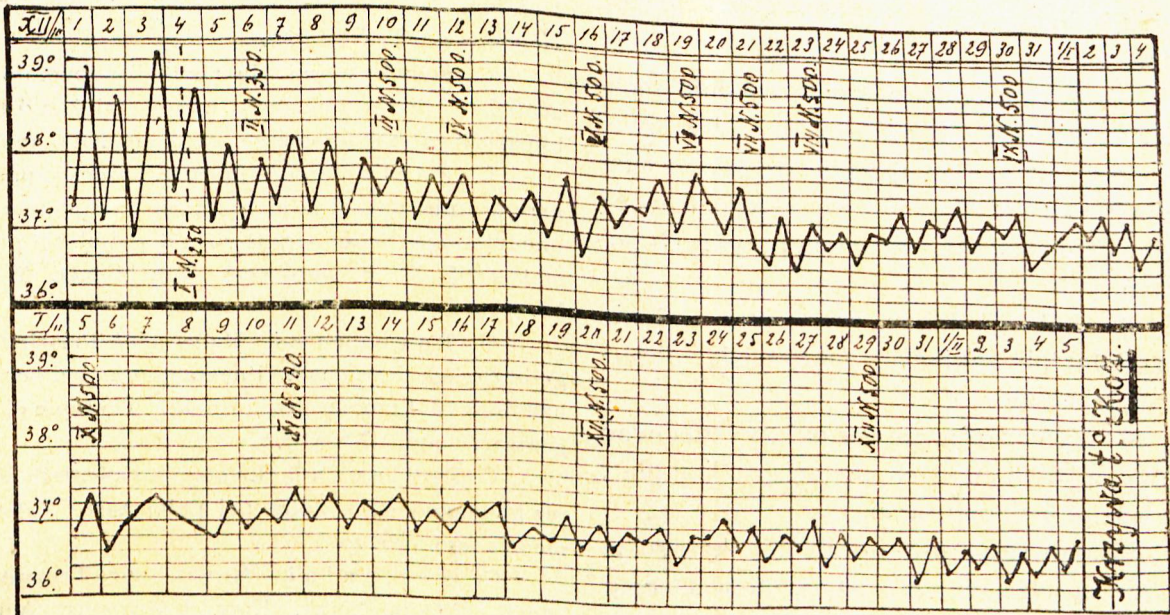 XII/11 1 2 3 4 5 6 7 8 9 10 11 12 13 14 15 16 17 18 19 20 21 22 23 24 25 26 27 28 29 30 31 1/I 2 3 4
39°
38°
37°
36°
I N. 250
II N. 350
III N. 500.
IV N. 500.
N. 500.
N. 500.
N. 500
VIII N. 500.
IX N. 500
I/11 5 6 7 8 9 10 11 12 13 14 15 16 17 18 19 20 21 22 23 24 25 26 27 28 29 30 31 1/II 2 3 4 5
39°
38°
37°
36°
X N. 500
XI N. 500.
XII N. 500.
XIII N. 500
Krzywa t° Koz.